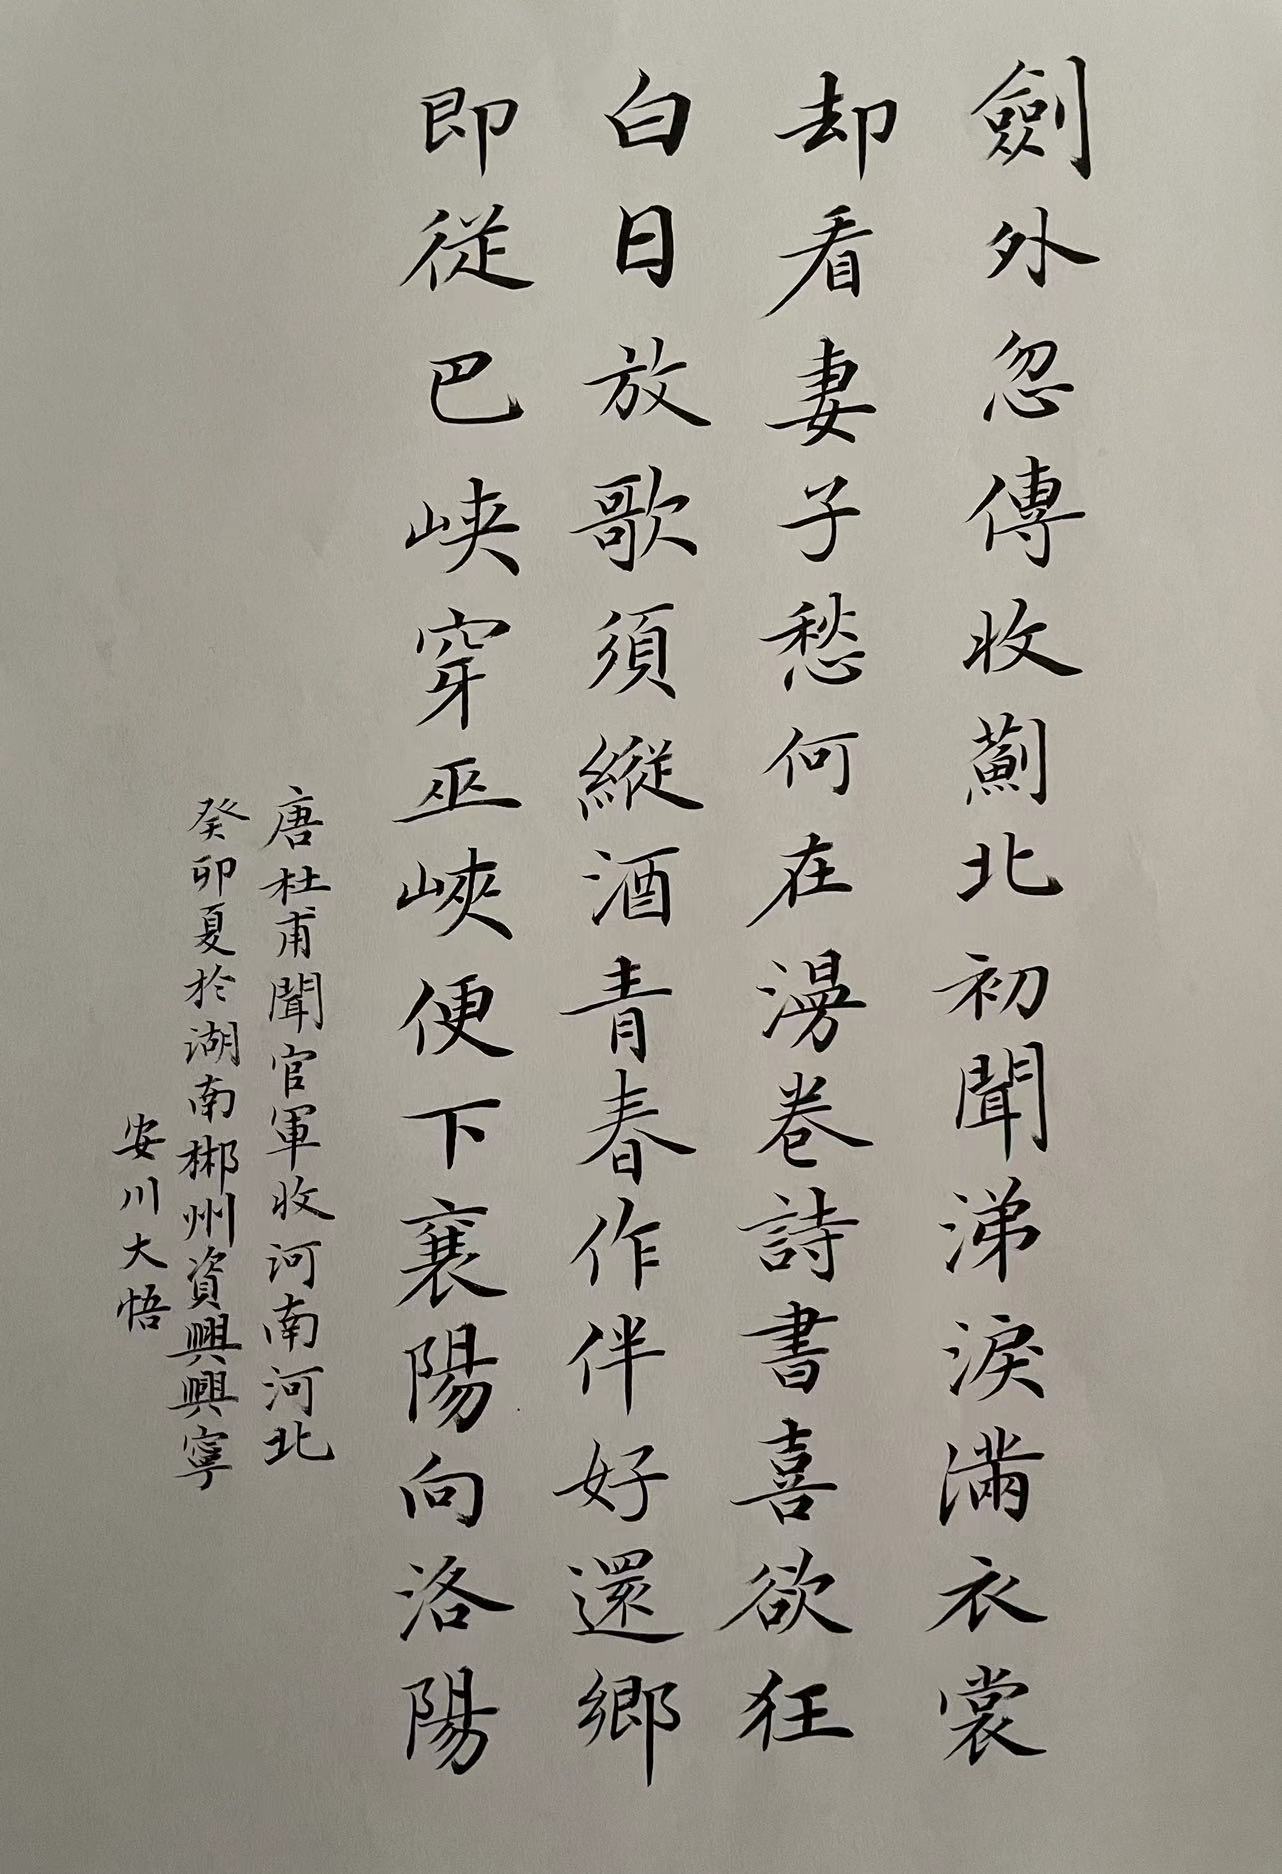 劍外忽傳收薊北初聞涕淚滿衣裳
却看妻子愁何在漫卷詩書喜欲狂
白日放歌須縱酒青春作伴好還鄉
即從巴峡穿巫峽便下襄陽向洛陽
唐杜甫聞官軍收河南河北
癸卯夏於湖南郴州資興興寧
安川大悟